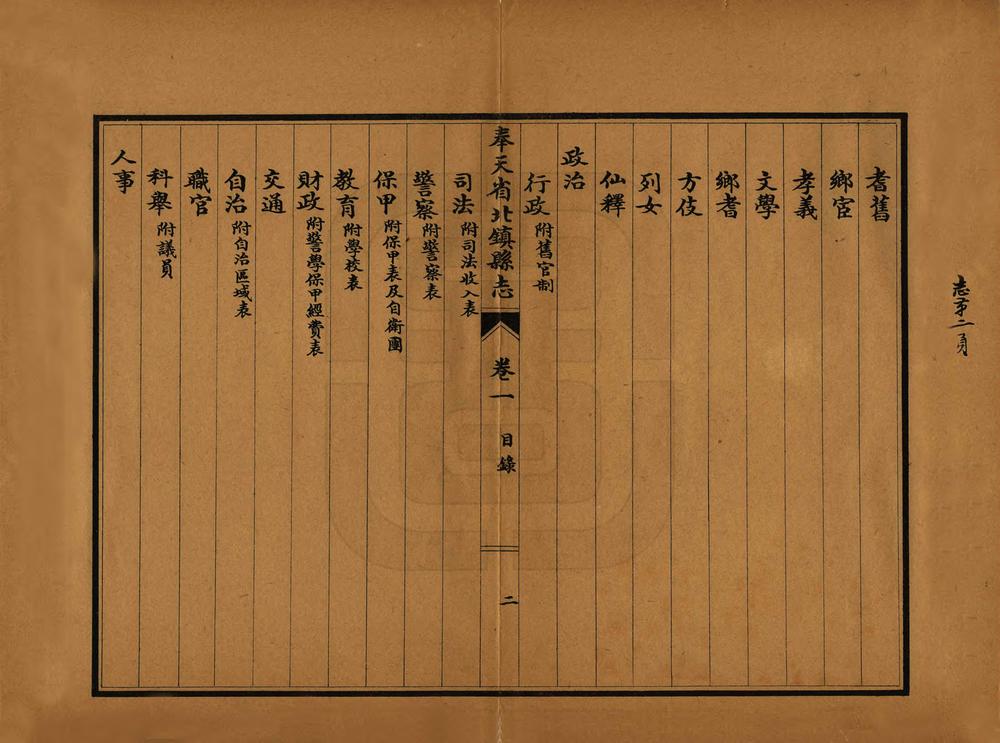 志第二頁
耆舊
鄉宦
孝義
文學
鄉耆
方伎
列女
仙釋
政治
行政 附舊官制
奉天省北鎮縣志 卷一 目錄 二
司法 附司法收入表
警察 附警察表
保甲 附保甲表及自衛團
教育 附學校表
財政 附警學保甲經費表
交通
自治 附自治區域表
職官
科舉 附議員
人事